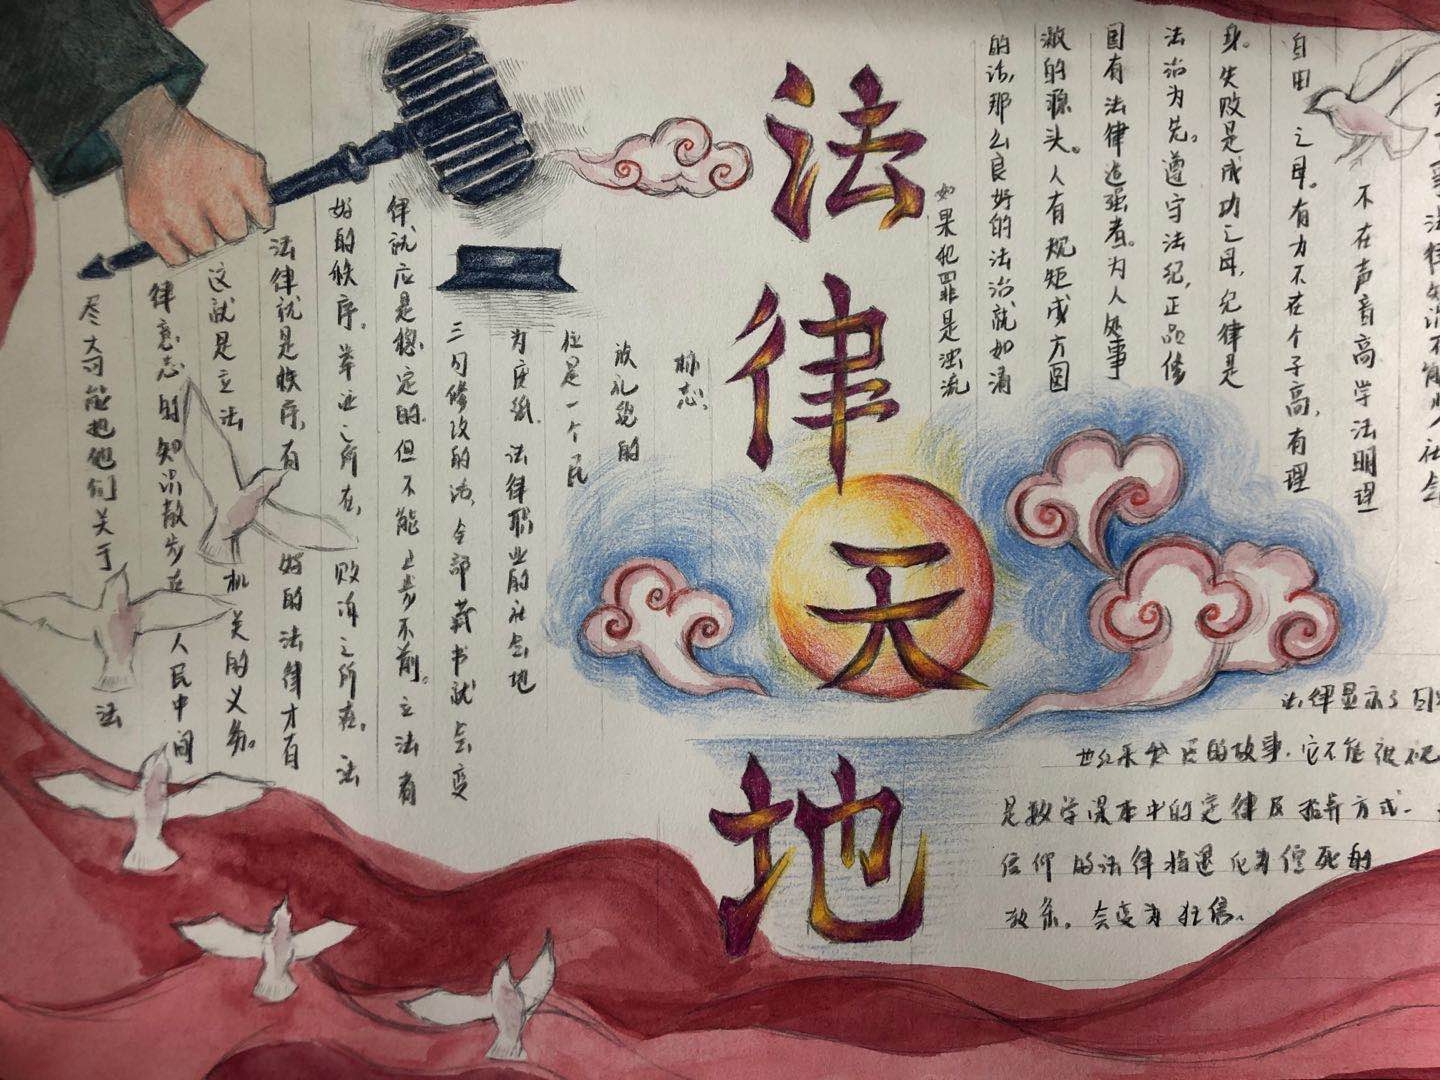 法律天地
自由
之母。有力不在个子高,有理
不在声音高学法明理
身。失败是成功之母,纪律是
法治为先。遵守法纪,正品修
国有法律造强者。为人处事
澈的源头。人有规矩成方圆
的法,那么良好的法治就如清
如果犯罪是浊流
标志。
被礼貌的
往是一个民
为废纸。法律职业的社会地
三句修改的话,全部藏书就会变
律就应是稳定的,但不能止步不前。立法有
好的秩序。举证之所在,败诉之所在。法
法律就是秩序,有好的法律才有
这就是立法机关的义务。
律意志的知识散步在人民中间
尽大可能把他们关于法
法律显示了
世纪来发展的故事,它不能被视
是数学课本中的定律及推算方式。
信仰的法律将退化为僵死的
教条,会变为狂信。